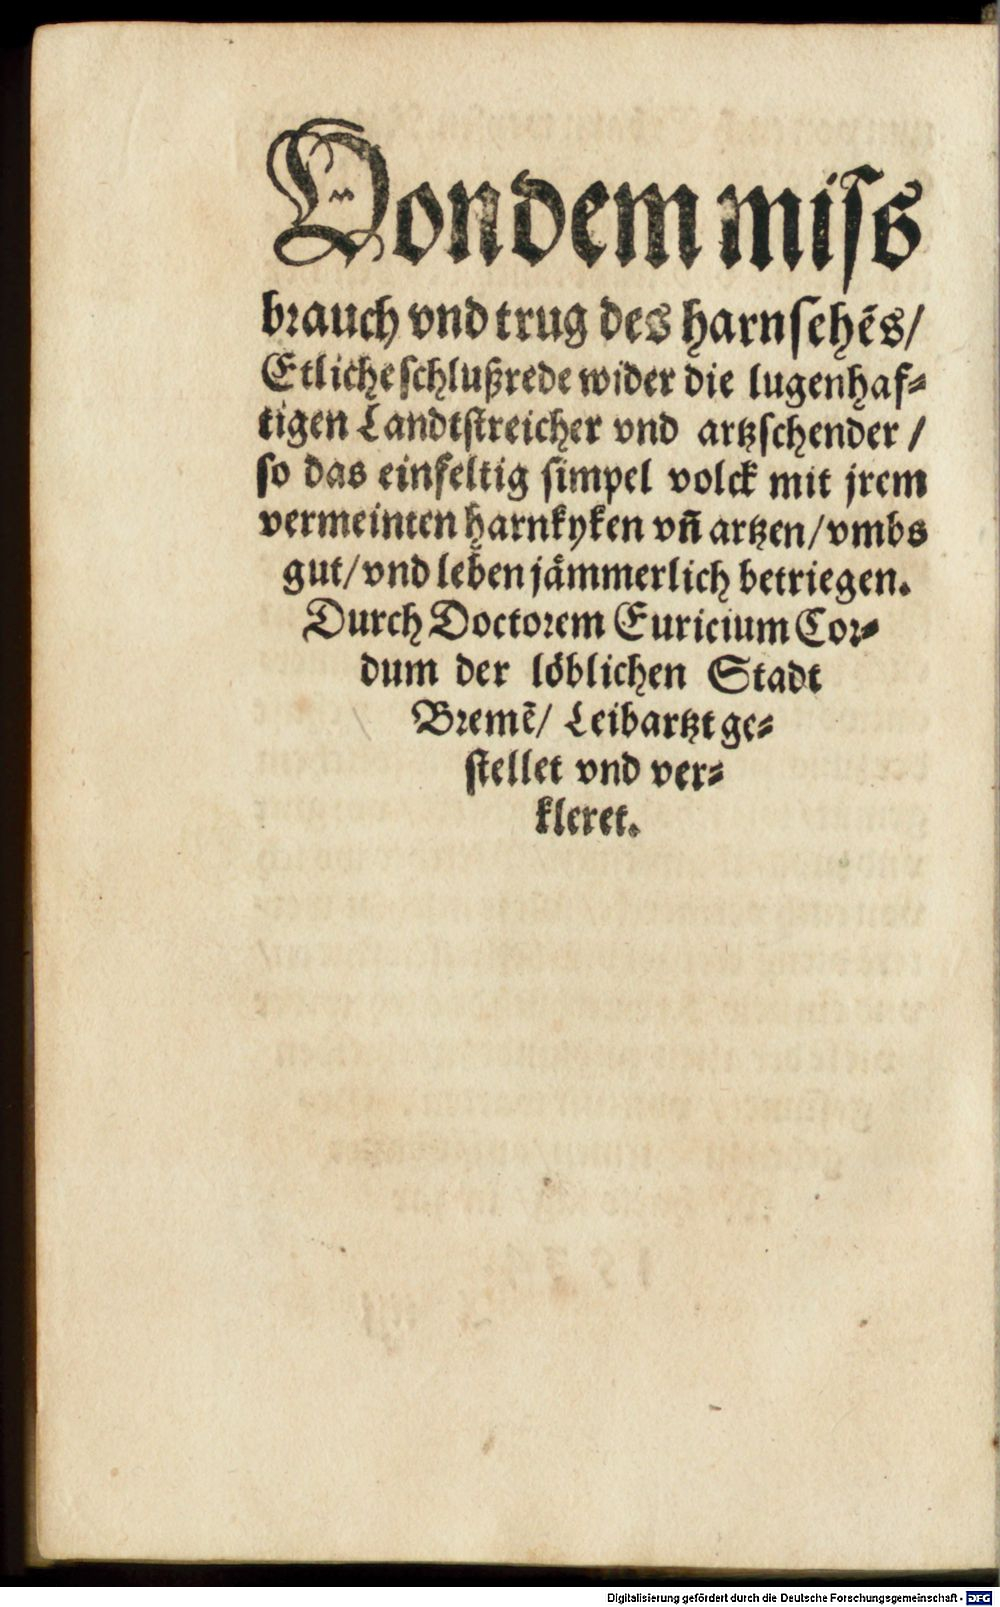 Von dem miſs
brauch vnd trug des harnſehẽs/
Etliche ſchlußrede wider die lugenhaf⸗
tigen Landtſtreicher vnd artzſchender /
ſo das einfeltig ſimpel volck mit jrem
vermeinten harnkyken vñ artzen/ vmbs
gut/ vnd leben jämmerlich betriegen.
Durch Doctorem Euricium Cor⸗
dum der löblichen Stadt
Bremẽ/ Leibartzt ge⸗
ſtellet vnd ver⸗
kleret.
Digitalisierung gefördert durch die Deutsche Forschungsgemeinschaft - DFG